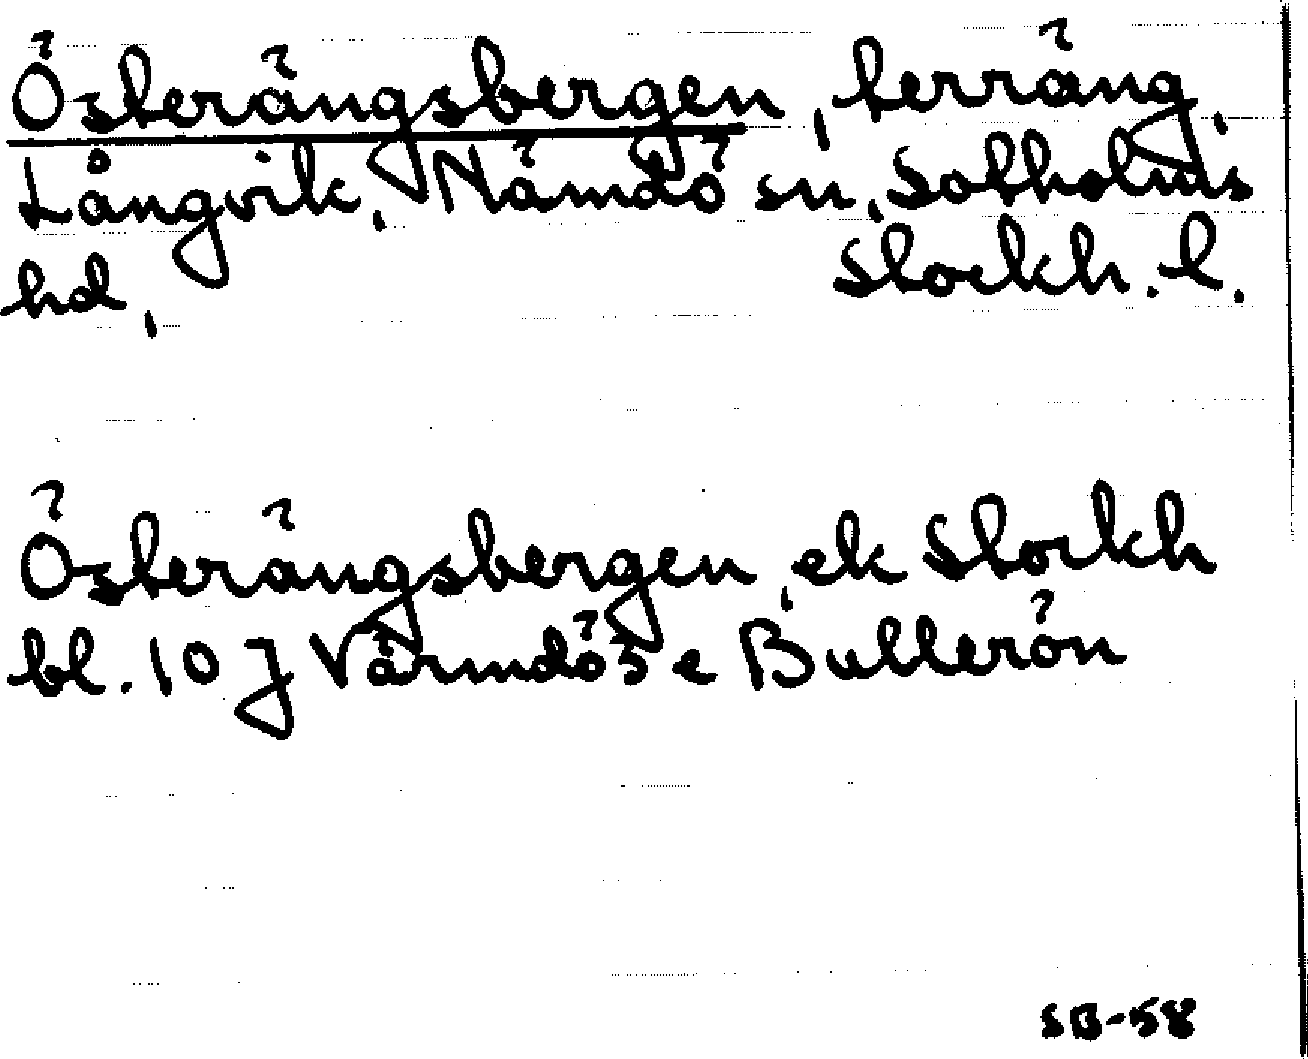 Österängsbergen, terräng,
Långvik, Nämdö sn, Sotholms
hd, Stockh. l.
Österängsbergen, ek Stockh
bl. 10 J Värmdö s e Bullerön
SB-58